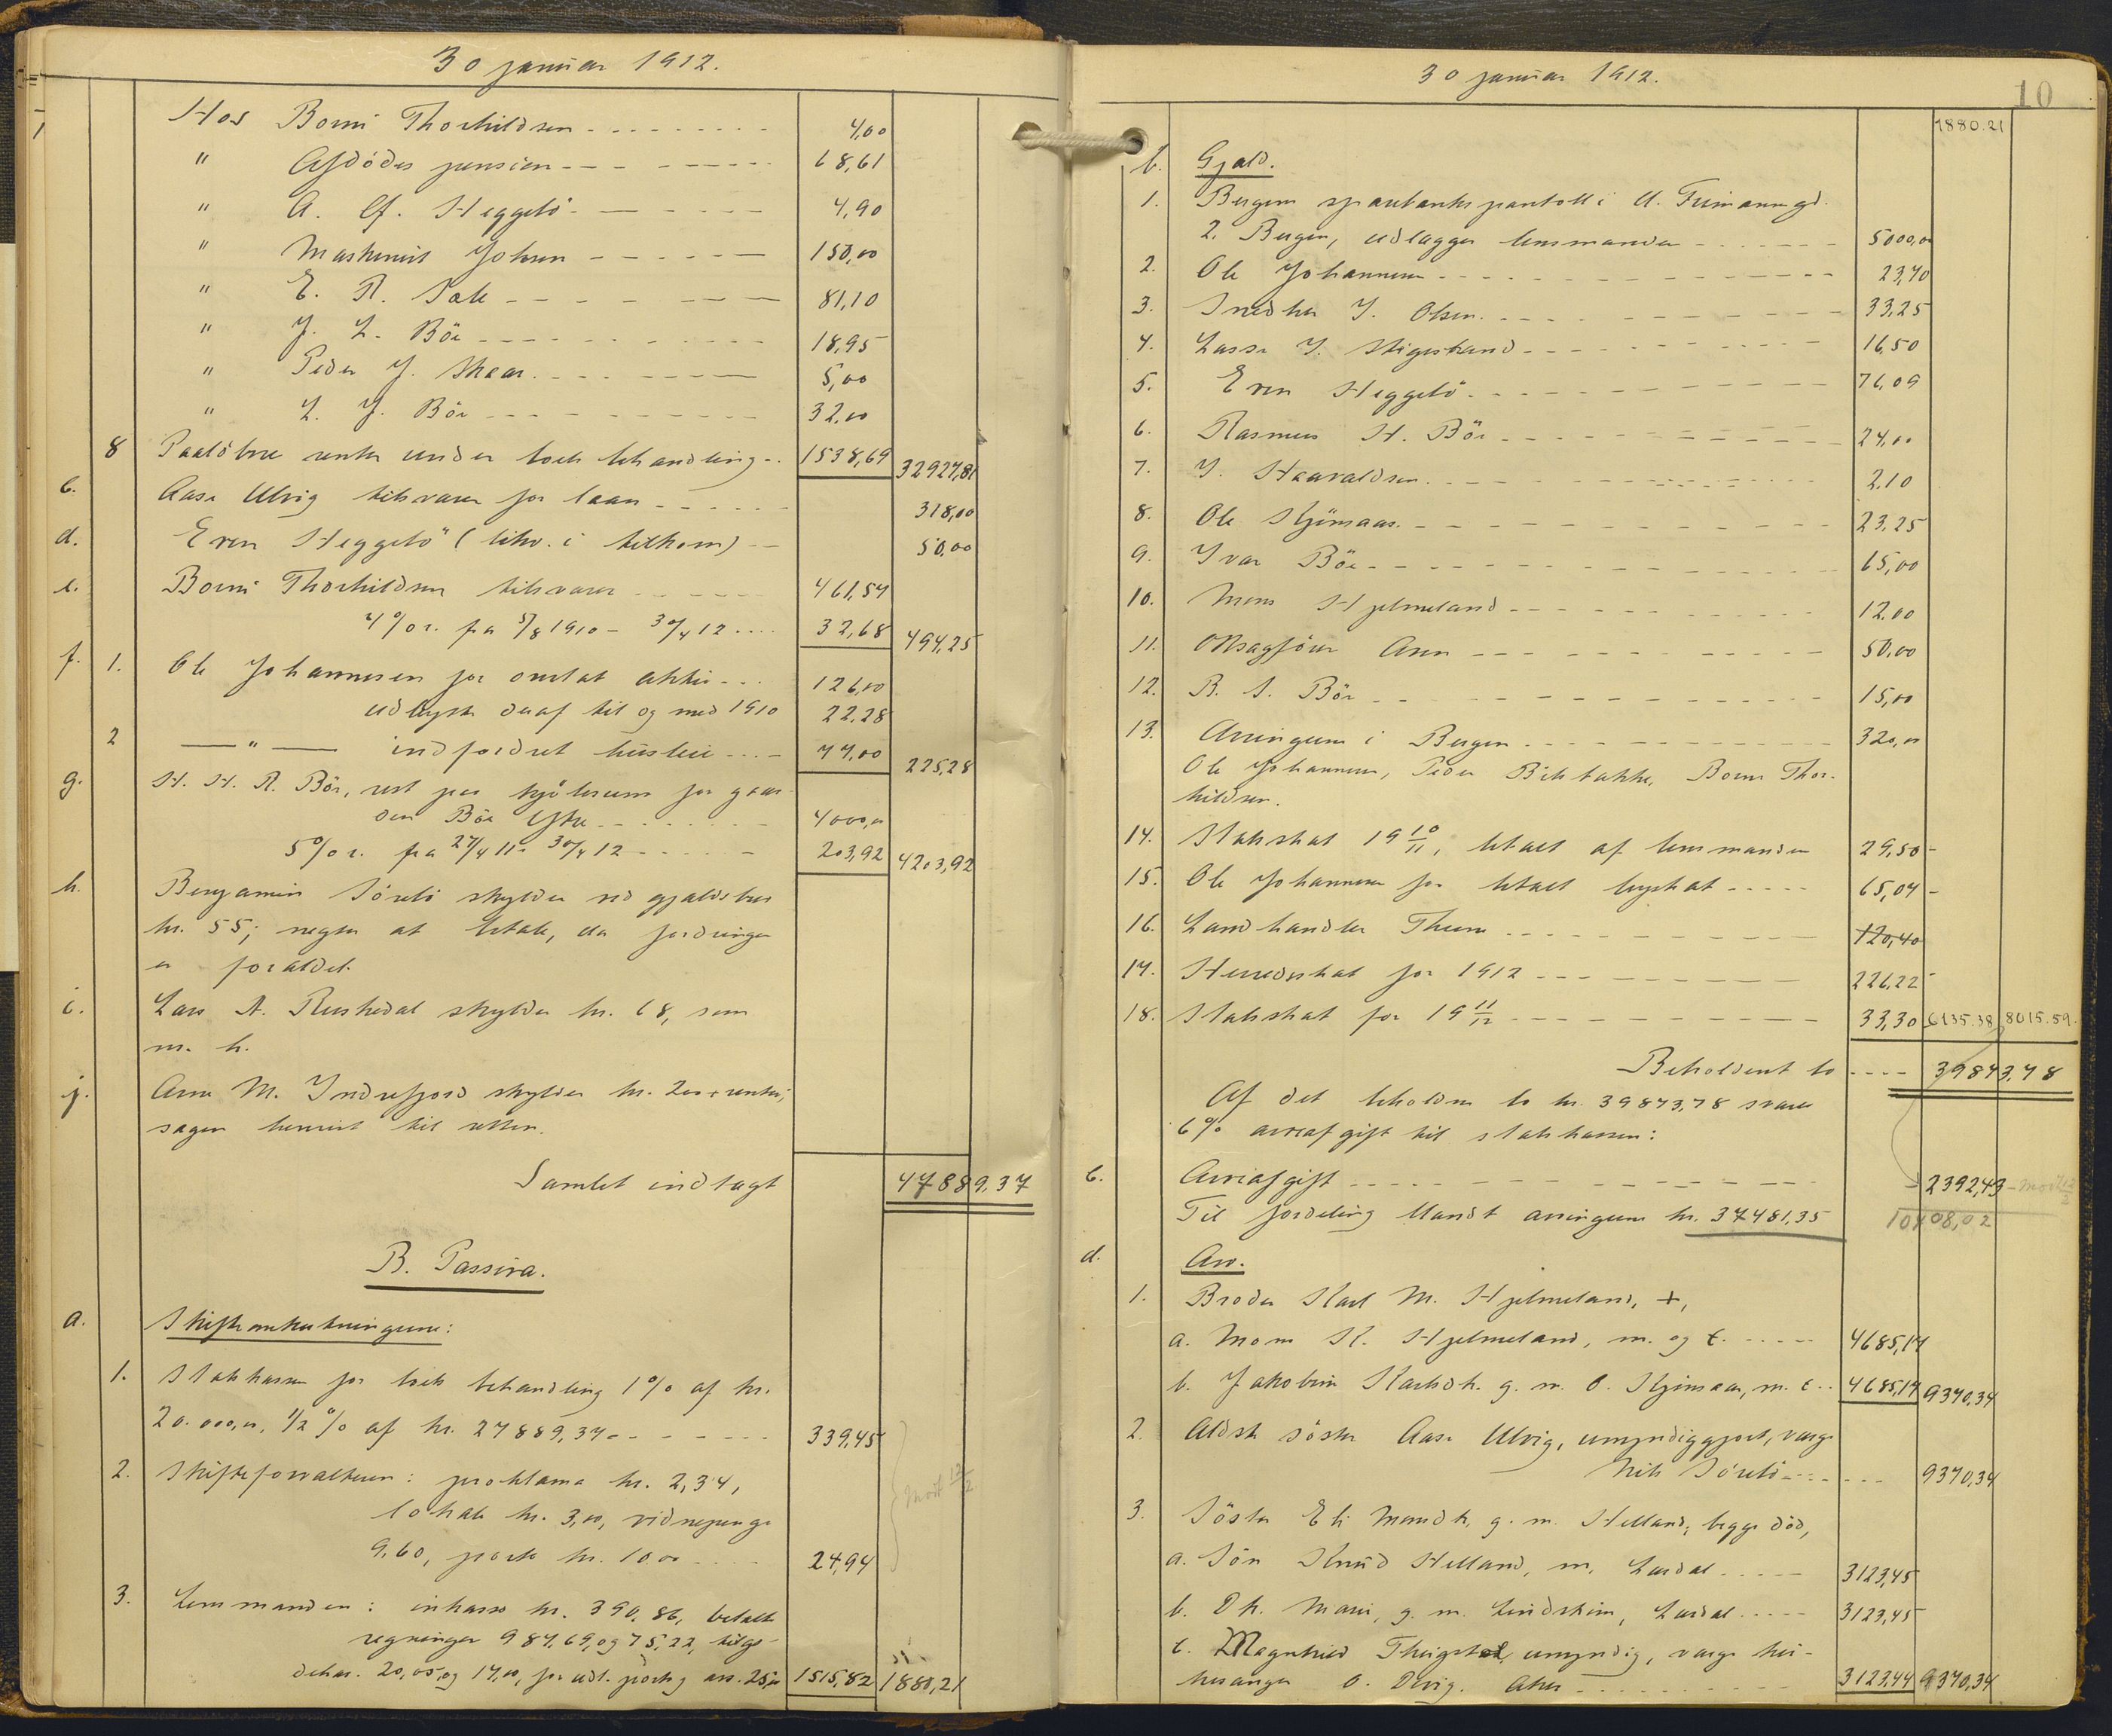 30 januar 1912.
Hos Borni Thorkildsen 4,00
" Afdödes pension 68,61
" A. Cf. Heggelö 4,90
" Maskinist Johsen 150,00
" E. R. 81,10
" J. L. Böe 18,95
" Peder J. Skaar 5,00
" L. J. Böe 32,00
8 Paalöbne renter under boets behandling 1538,69 32927,81
c. Aasa Ulvig tilsvarer for laan 318,00
d. Even Heggelö (likv. i tilkom) 50,00
e. Borni Thorkildsen tilsvarer 461,57
4% r. fra 5/8 1910 - 30/4 12 32,68 494,25
f. 1. Ole Johannesen for omtat aktie 126,00
udbytte deraf til og med 1910 22,28
2 — " — indfordret husleie 77,00 225,28
g. H. H. R. Böe, rest paa kjöbesum for gaar-
den Böe Ytre 4000,00
5% r. fra 27/4 11 - 30/4 12 203,92 4203,92
h. Benjamin Sörebö skylder ved gjældsbev
kr. 55; negter at betale, da fordringen
er forældet.
i. Lars A. Rushedal skylder kr. 68, som
m. h.
j. Arne M. Indrefjord skylder kr. 200 + renter,
sagen henvist til retten.
Samlet indtægt 47889,37
B. Passiva.
a. Skifteomkostningerne:
1. Statskassen for boets behandling 1% af kr.
20.000,00, 1/2% af kr. 27889,37 339,45
2. Skifteforvalteren: proklama kr. 2,34,
lokale kr. 3,00, vidnepenge
9,60, porto kr. 10.00 24,94
mod 12/2
3. Lensmanden: inkasso kr. 390,86, betalte
regninger 987,69, og 75,22, tilgo-
dehav. 20,05, og 17,00, for udl. porto og ass. 25,00 1515,82 1880,21
30 januar 1912.
10
1880.21
b. Gjæld.
1. Bergens sparebanks pantobl. i A. Frimannsgd.
2. Bergen, udlægger lensmanden 5000,00
2. Ole Johannesen 23,70
3. Snedker J. Olsen 33,25
4. Lasse J. Stigestrand 16,50
5. Even Heggelö 76,09
6. Rasmus H. Böe 24,00
7. J. Haavaldsen 2,10
8. Ole Skjimsaas 23,25
9. Ivar Böe 65,00
10. Mons Hjelmeland 12,00
11. OR.sagförer Aven 50,00
12. B. S. Böe 15,00
13. Arvingerne i Bergen 320,00
Ole Johannesen, Peder Birktakke, Borni Thor-
kildsen.
14. Statsskat 19 10/11, betalt af lensmanden 29,50
15. Ole Johannesen for betalt byskat 65,04
16. Landhandler Thune 120,40
17. Herredsskat for 1912 226,22
18. Statsskat for 19 11/12 33,30 6135.38 8015.59
Beholdent bo 39873,78
Af det beholdne bo kr. 39873,78 svares
6% arveafgift til statskassen:
c. Arveafgift 2392,43 mod 12/2
Til fordeling blandt arvingerne kr. 37481,35 10408,02
d. Arv.
1. Broder Karl M. Hjelmeland, +,
a. Mons K. Hjelmeland, m. og t. 4685,17
b. Jakobine Karlsdt. g. m. O. Skjimsaas, m. t. 4685,17 9370,34
2. Ældste söster Aasa Ulvig, umyndiggjort, værge
Nils Sörebö 9370,34
3. Söster Eli Monsdt. g. m. Helland, begge död,
a. Sön Knud Helland, m. Lærdal 3123,45
b. Dt. Mari, g. m. Lindstrim, Lærdal 3123,45
c. Magnhild umyndig, værge kir-
kesanger O. Aker 3123,44 9370,34